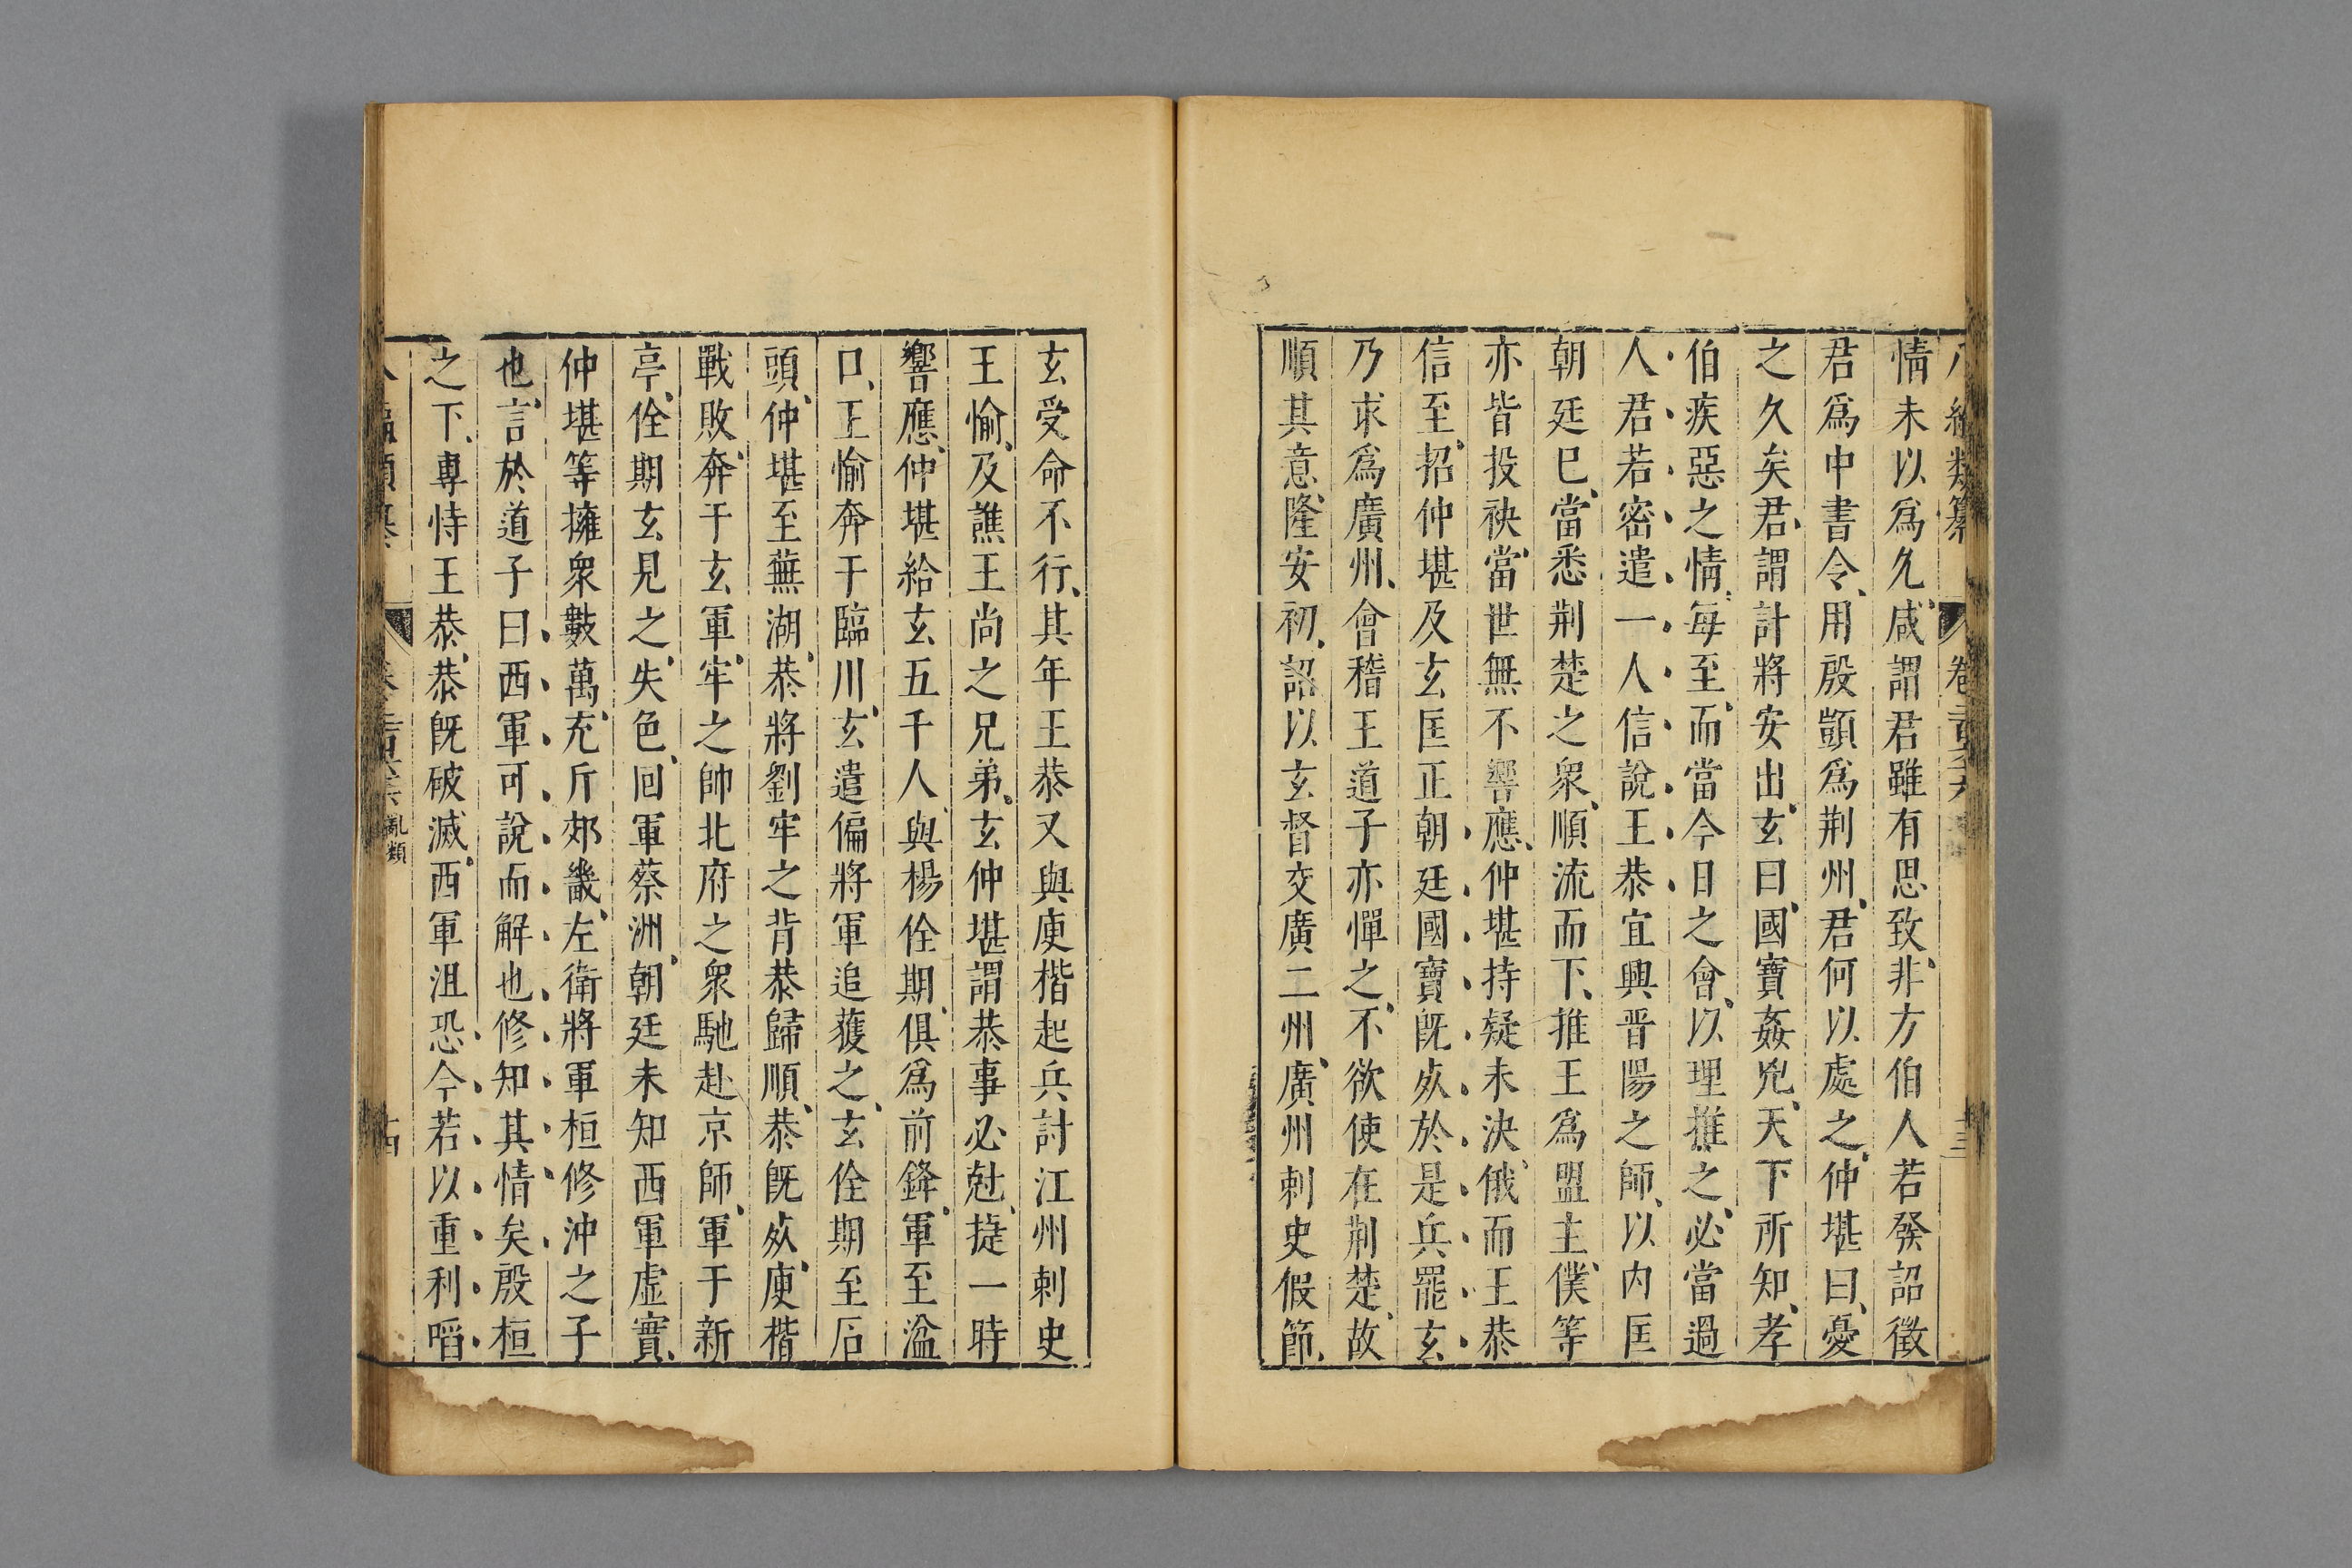 情未以爲允咸謂君雖有思致非方伯人若發詔徵
君爲中書令用殷顗爲荆州君何以處之仲堪曰憂
之久矣君謂計將安出玄曰國寶姦兇天下所知孝
伯疾惡之情每至而當今日之會以理推之必當過
人君若密遣一人信說王恭宜興晋陽之師以内匡
朝廷巳當悉荆楚之衆順流而下推王爲盟主僕等
亦皆投袂當世無不響應仲堪持疑未決俄而王恭
信至招仲堪及玄匡正朝廷國寶旣𣦸於是兵罷玄
乃求爲廣州會稽王道子亦憚之不欲使在荆楚故
順其意隆安初詔以玄督交廣二州廣州刺史假節
玄受命不行其年王恭又與庾楷起兵討江州刺史
王愉及譙王尚之兄弟玄仲堪謂恭事必尅捷一時
響應仲堪給玄五千人與楊佺期俱爲前鋒軍至湓
口王愉奔于臨川玄遣偏將軍追獲之玄佺期至石
頭仲堪至蕪湖恭將劉牢之背恭歸順恭旣𣦸庾楷
戰敗奔于玄軍牢之帥北府之衆馳赴京師軍于新
亭佺期玄見之失色回軍蔡洲朝廷未知西軍虛實
仲堪等擁衆數萬充斥郊畿左衛將軍桓修沖之子
也言於道子曰西軍可說而解也修知其情矣殷桓
之下專恃王恭恭旣破滅西軍沮恐今若以重利㗖
亂類